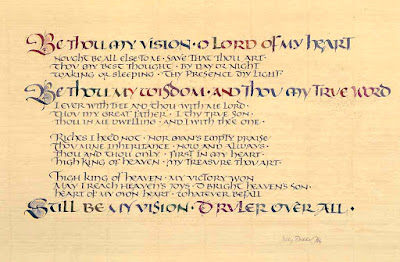 Be thou my vision · O Lord of my heart
Nought be all else to me · save that thou art ·
Thou my best thought · by day or night
Waking or sleeping · thy presence my light ·
Be thou my wisdom · and thou my true word
I ever with thee and thou with me Lord ·
Thou my great Father · I thy true son ·
Thou in me dwelling · and I with thee one ·
Riches I heed not · nor man's empty praise
Thou mine inheritance · now and always ·
Thou and thou only · first in my heart ·
High king of heaven · my treasure thou art ·
High king of heaven · my victory won
May I reach heaven's joys · O bright heaven's son ·
Heart of my own heart · whatever befall
Still be my vision · O ruler over all ·